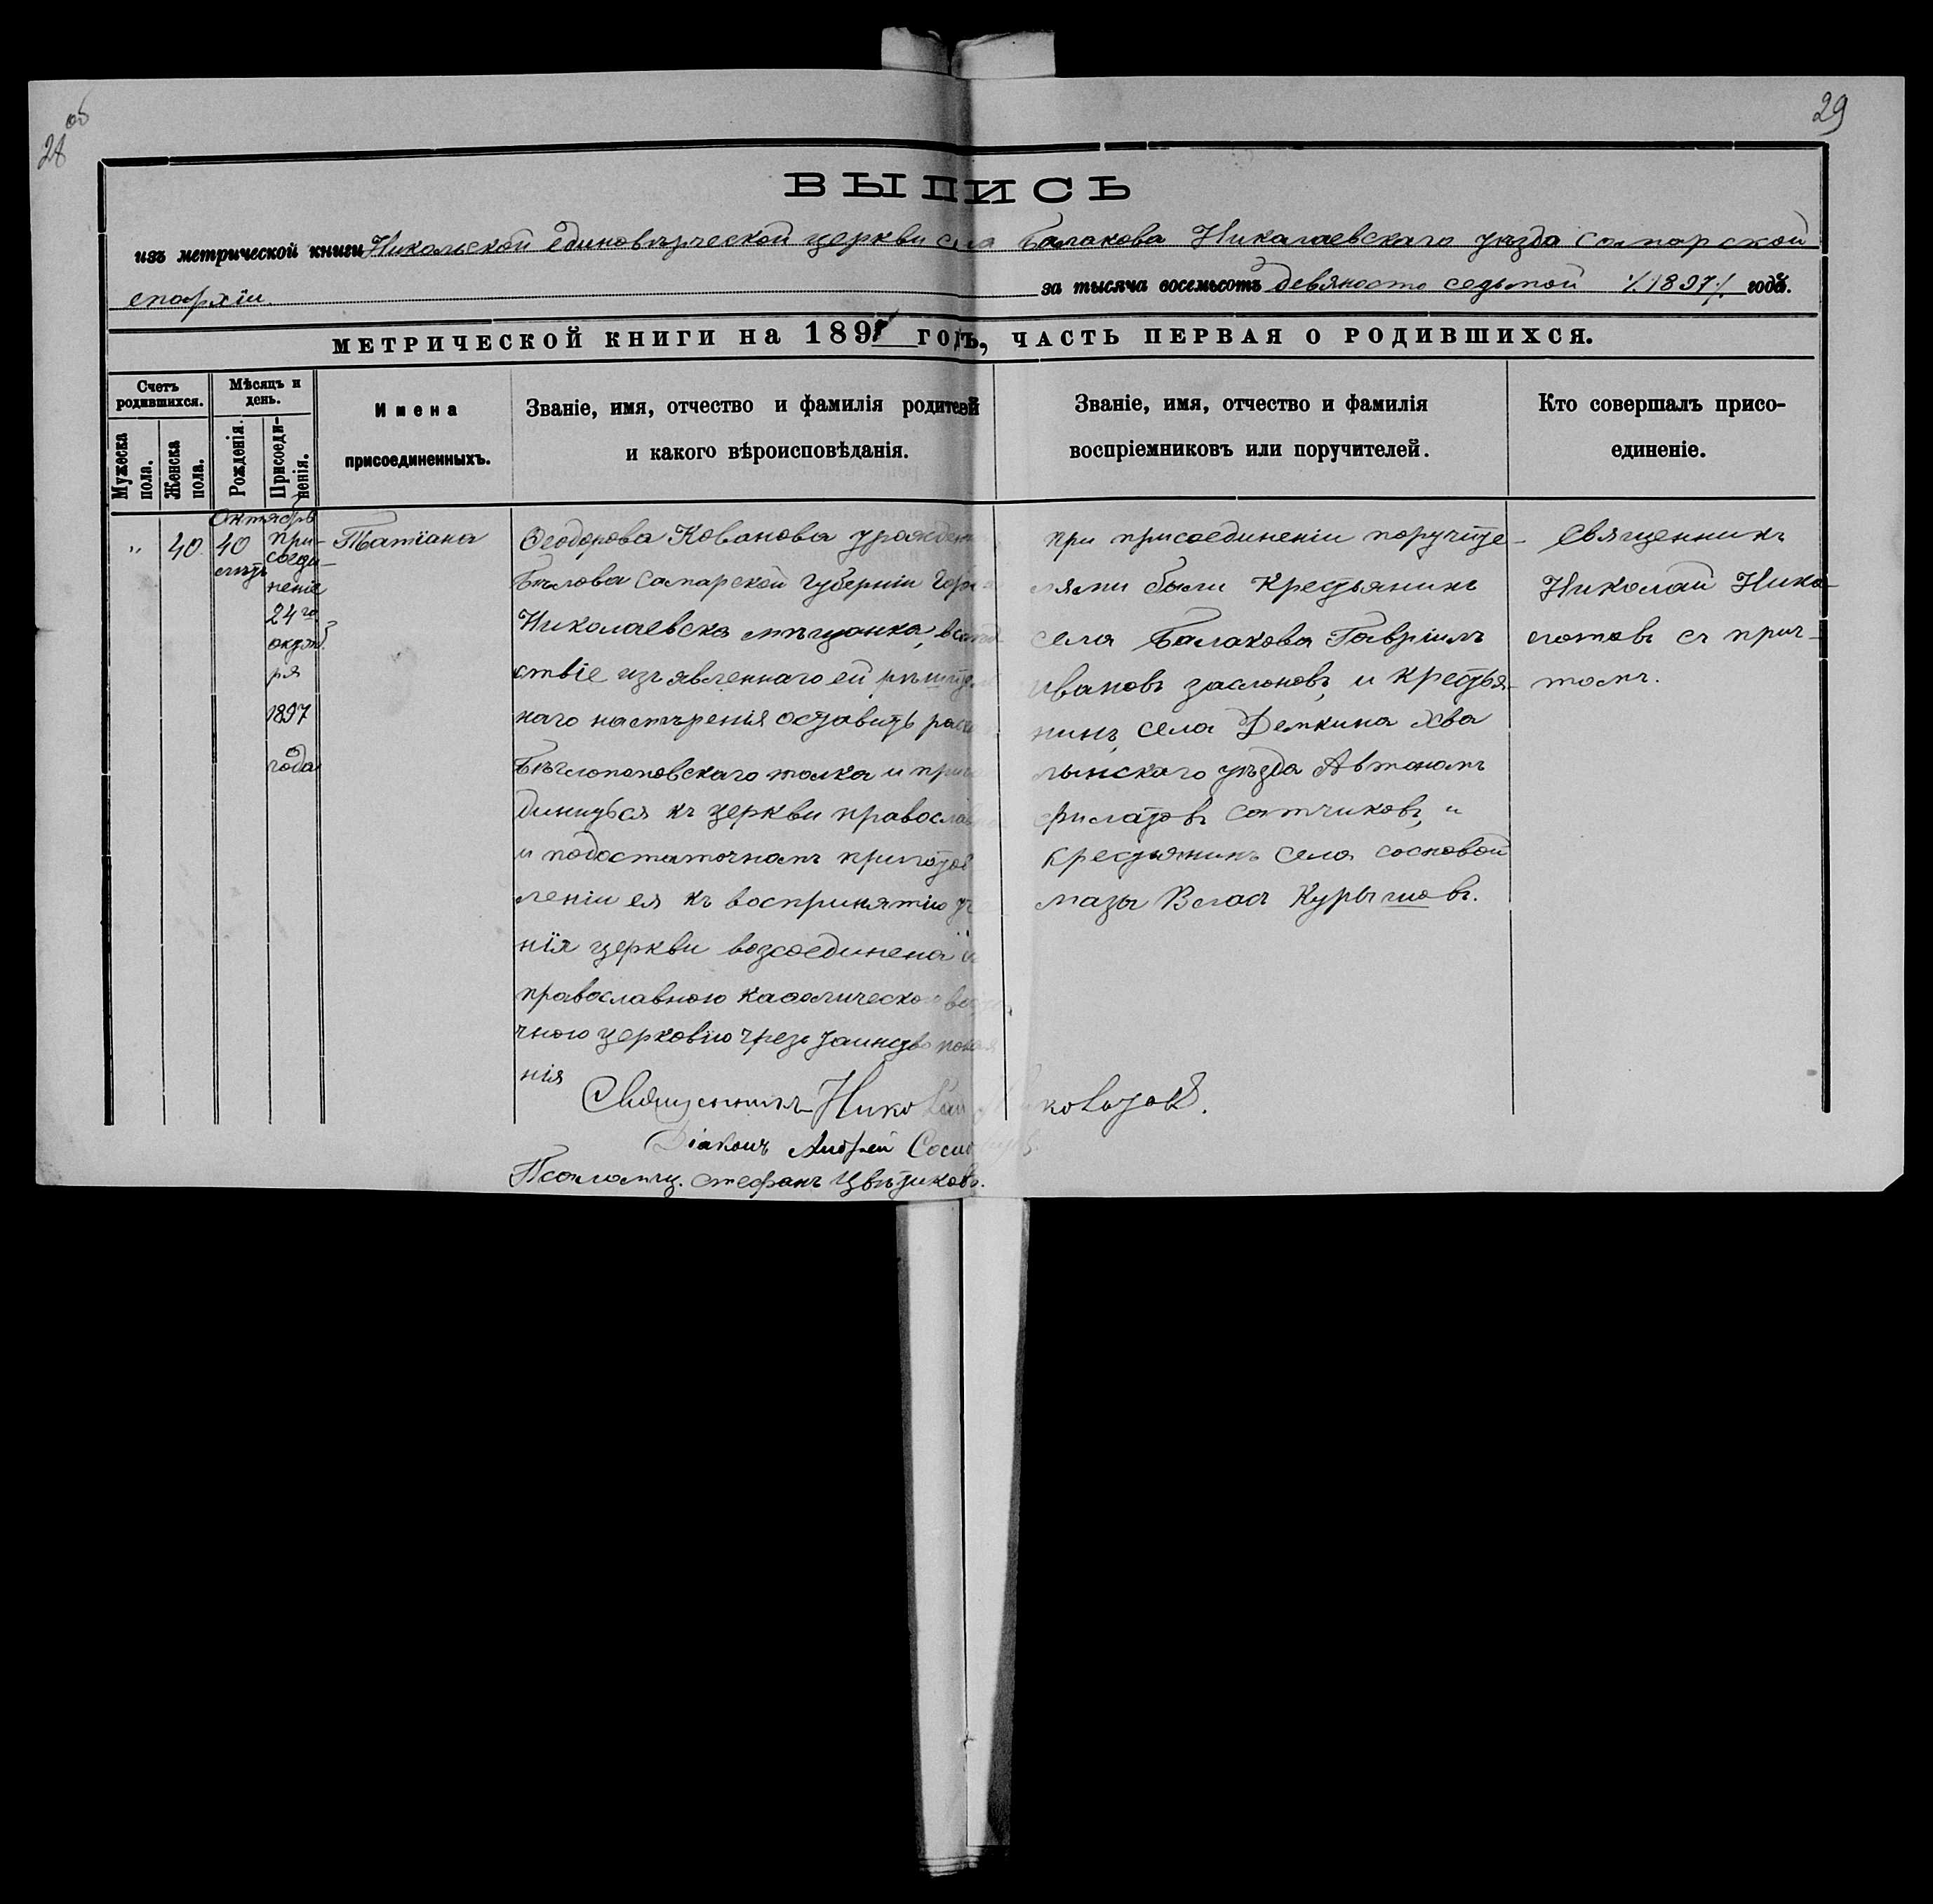 28 об
29
ВЫПИСЬ
изъ метрической книги Никольской единовѣрческой церкви села Балакова Николаевскаго уѣзда Самарской
епархіи за тысяча восемьсотъ девяносто седьмой /1897/ годъ.
МЕТРИЧЕСКОЙ КНИГИ на 1897 годъ, ЧАСТЬ ПЕРВАЯ О РОДИВШИХСЯ.
Счетъ родившихся.
Мужеска пола.
Женска пола.
Мѣсяцъ и день.
Рожденія.
Присоединенія.
Имена
присоединенныхъ.
Званіе, имя, отчество и фамилія родителей
и какого вѣроисповѣданія.
Званіе, имя, отчество и фамилія
воспріемниковъ или поручителей.
Кто совершалъ присо-
единеніе.
Октябрь
"
40.
40
лѣтъ
при-
соеди-
неніе
24го
октяб
ря
1897
года
Татіана
Ѳеодорова Кованова урожден
Бѣлова Самарской губерніи гор
Николаевска мѣщанка, вслѣд
ствіе изъявленнаго ей рѣшител
наго намѣренія оставить раско
Бѣглопоповскаго толка и присо
диниться къ церкви православ
и подостаточномъ приготов
леніи ея къ воспринятію уч
нія церкви возсоединена с
православною каѳолическою вос
чною церковію чрезъ таинство покая
нія
при присоединеніи поручите-
лями были крестьянинъ
села Балакова Гавріилъ
Ивановъ Заслоновъ, и крестья-
нинъ села Демкина Хва
лынскаго уѣзда Автономъ
Филатовъ Сатчиковъ, и
крестьянинъ села Сосновой
мазы Власъ Курышовъ.
Священникъ
Николай Нико
лотовъ съ прич-
томъ.
Священникъ Николай Николотов.
Діаконъ Андрей
Псаломщ. Стефанъ Цвѣтиковъ.